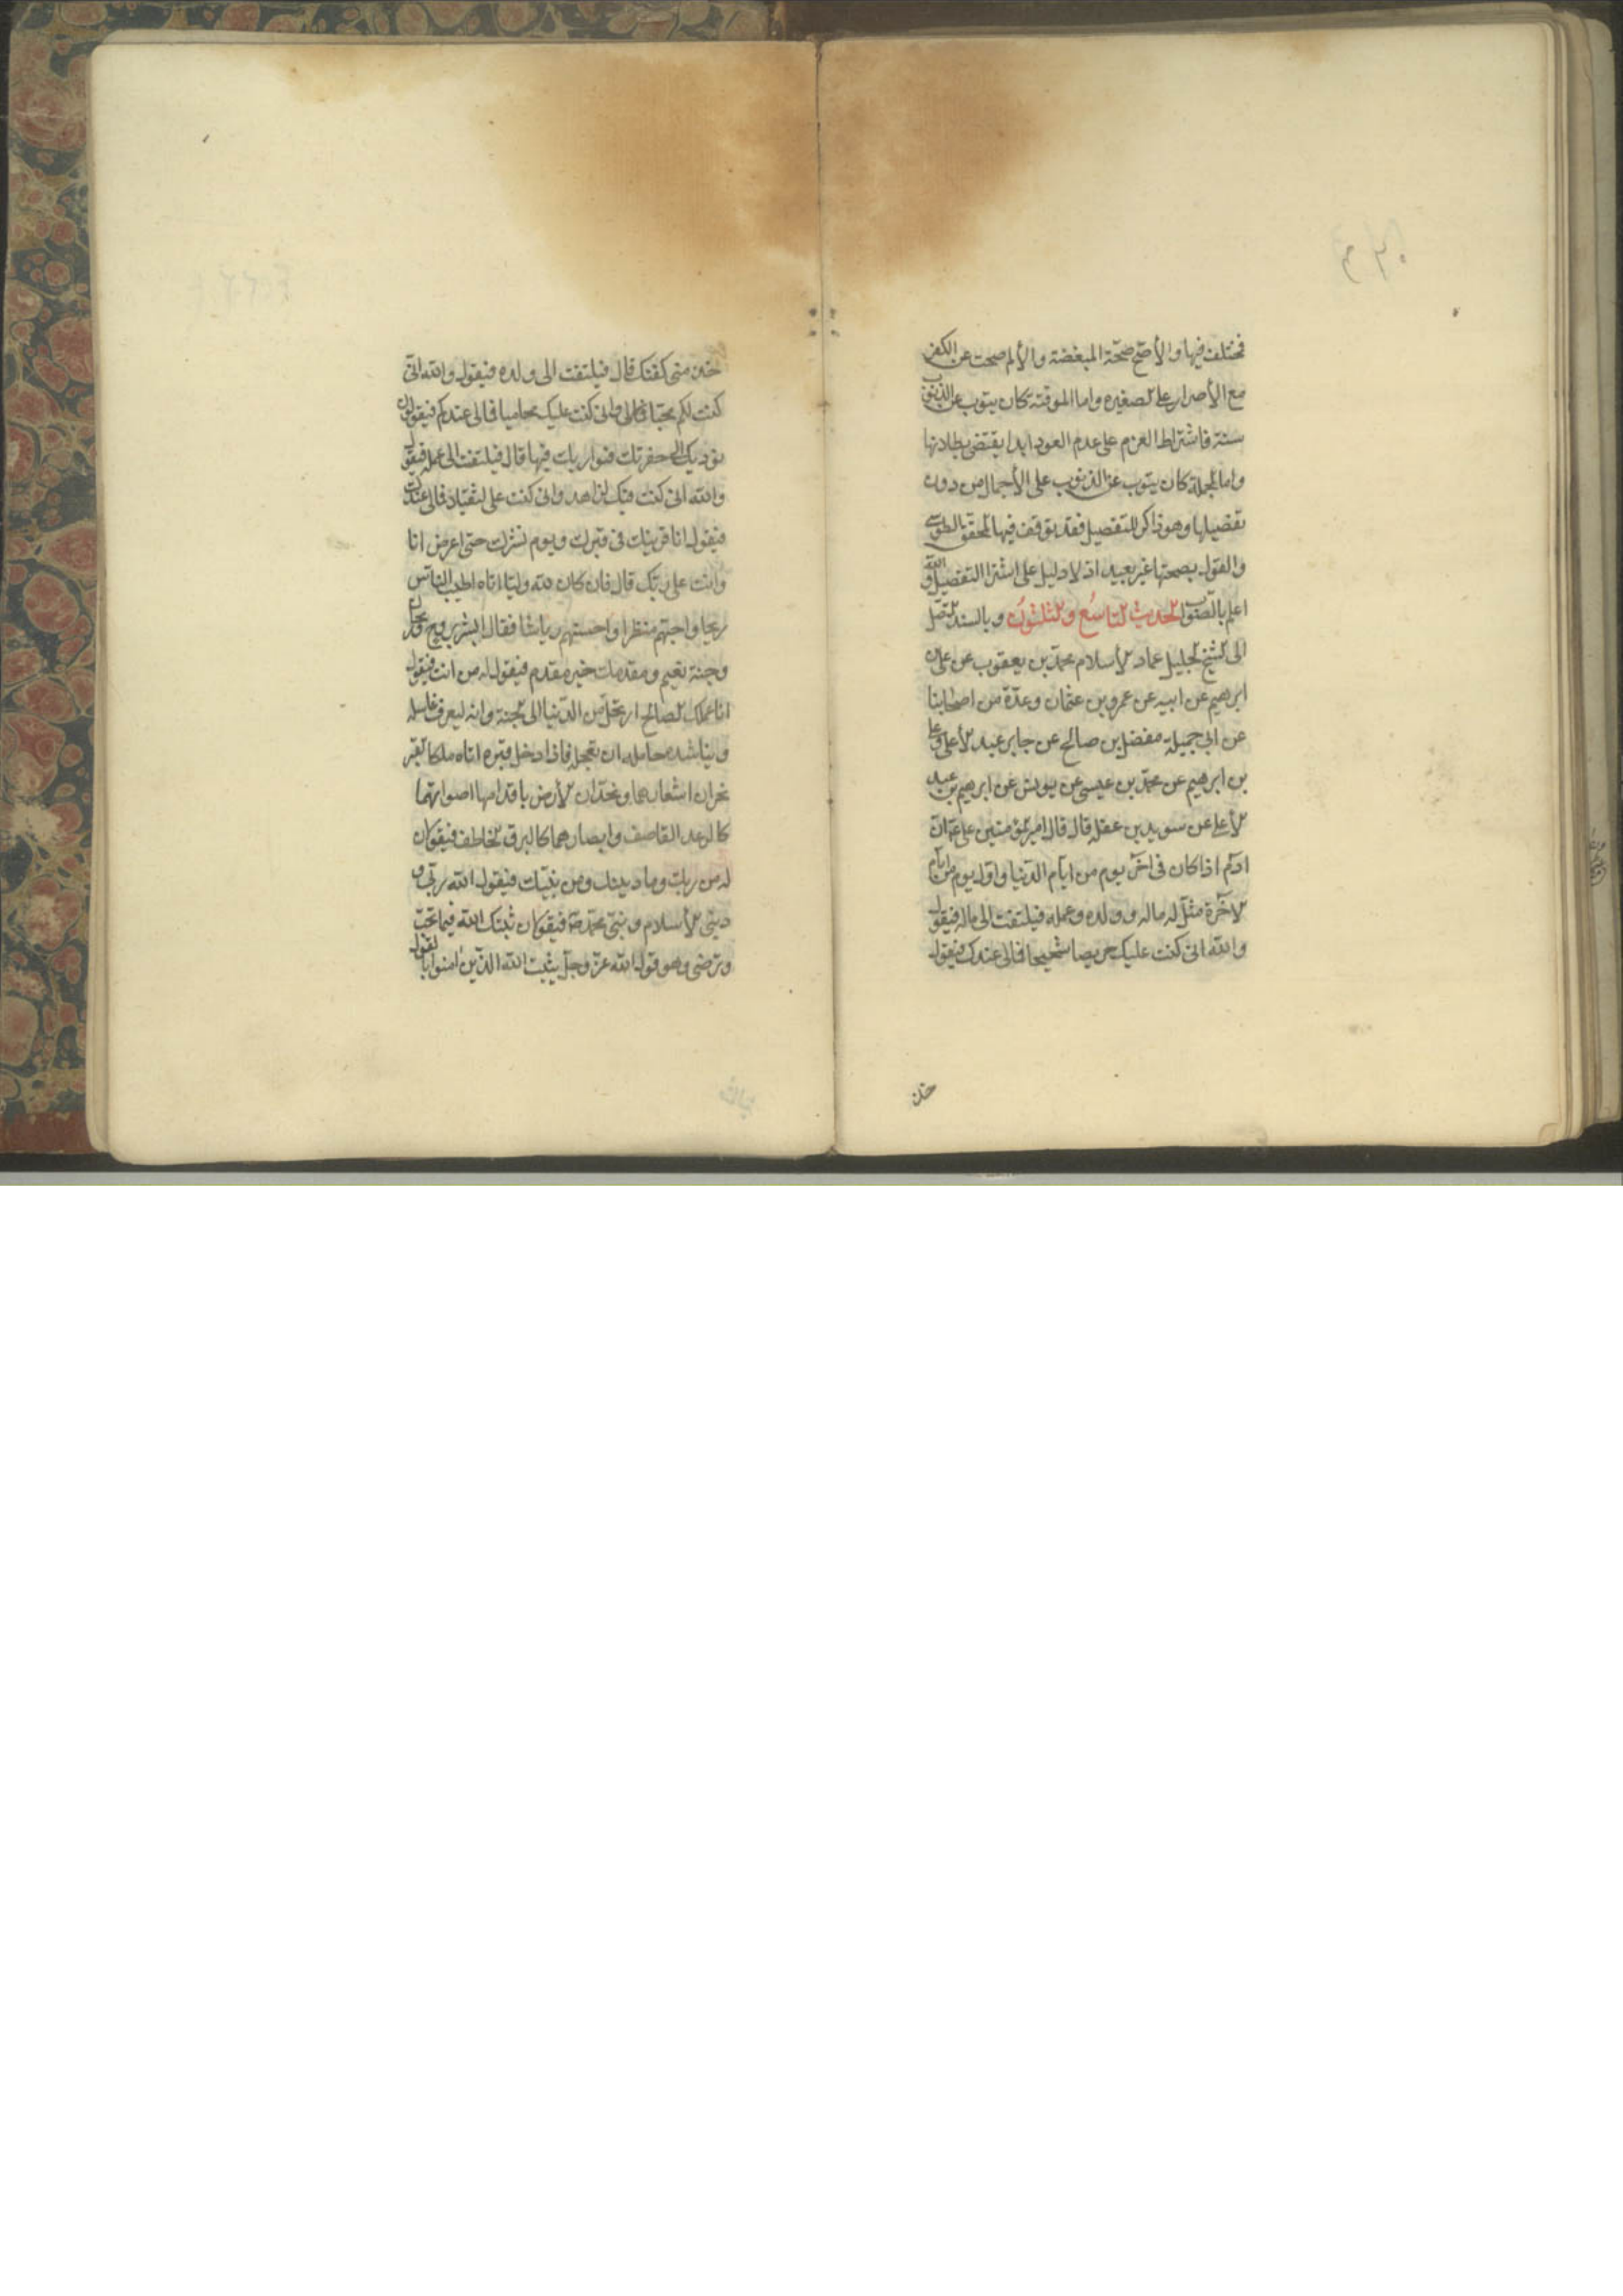 فمختلف فيها والأصح صحة المبعضة والا لم صحت عن الكفر
مع الأصرار على لصغيره واما الموقتة كان يتوب عن الذنوب
سنة فاشتراط العزم على عدم العود ابدا يقتضى بطلانها
واما لمجملة كان يتوب عن الذنوب على الأجمال من دون
تفضيلها وهو ذاكر للتفصيل فقد توقف فيها لمحقق الطوسى
والقول بصحتها غير بعيد اذ لا دليل على اشترا التفصيل والله
اعلم بالصواب لحديث لتاسع ولثلثون وبالسند لمتصل
الى لشيخ لجليل عماد لأسلام محمد بن يعقوب عن على بن
ابرهيم عن ابيه عن عمرو بن عثمان وعدة من اصحابنا
عن ابى جميلة مفضل بن صالح عن جابر عبد لأعلى وعلى
بن ابرهيم عن محمد بن عيسى عن يونس عن ابرهيم بن عبد
لأعلى عن سويد بن غفله قال قال امير لمؤمنين على ع ان ابن
ادم اذا كان فى اخر يوم من ايام الدنيا واول يوم من ايام
لاخرة مثل له ماله وولده وعمله فيلتفت الى ماله فيقول
والله انى كنت عليك حريصا شحيحا فمالى عندك فيقول
خذ
خذ منى كفنك قال فيلتفت الى ولده فيقول والله انى
كنت لكم محبا وانى كنت عليكم محاميا فمالى عندكم فيقولون
نوديك الى حفرتك فنواريك فيها قال فيلتفت الى عمله فيقول
والله انى كنت فيك لزاهد وانى كنت على لثقيلا فمالى عندك
فيقول انا قرينك فى قبرك ويوم نشرك حتى اعرض انا
وانت على ربك قال فان كان لله وليا اتاه اطيب الناس
ريحا واحبهم منظرا واحسنهم رياشا فقال ابشر بروح وريحان
وجنة نعيم ومقدمك خير مقدم فيقول له من انت فيقول
انا عملك لصالح ارتحل من الدنيا الى لجنة وانه ليعرف غاسله
ويناشد حامله ان يعجله فاذا دخل قبره اتاه ملكا لقبر
يجران اشعارهما ويخدان لأرض باقدامهما اصواتهما
كالرعد القاصف وابصارهما كالبرق لخاطف فيقولان
له من ربك وما دينك ومن نبيك فيقول الله ربى و
دينى لأسلام ونبيى محمد ص فيقولان ثبتك الله فيما تحب
وترضى وهو قول الله عز وجل يثبت الله الذين امنوا بالقول